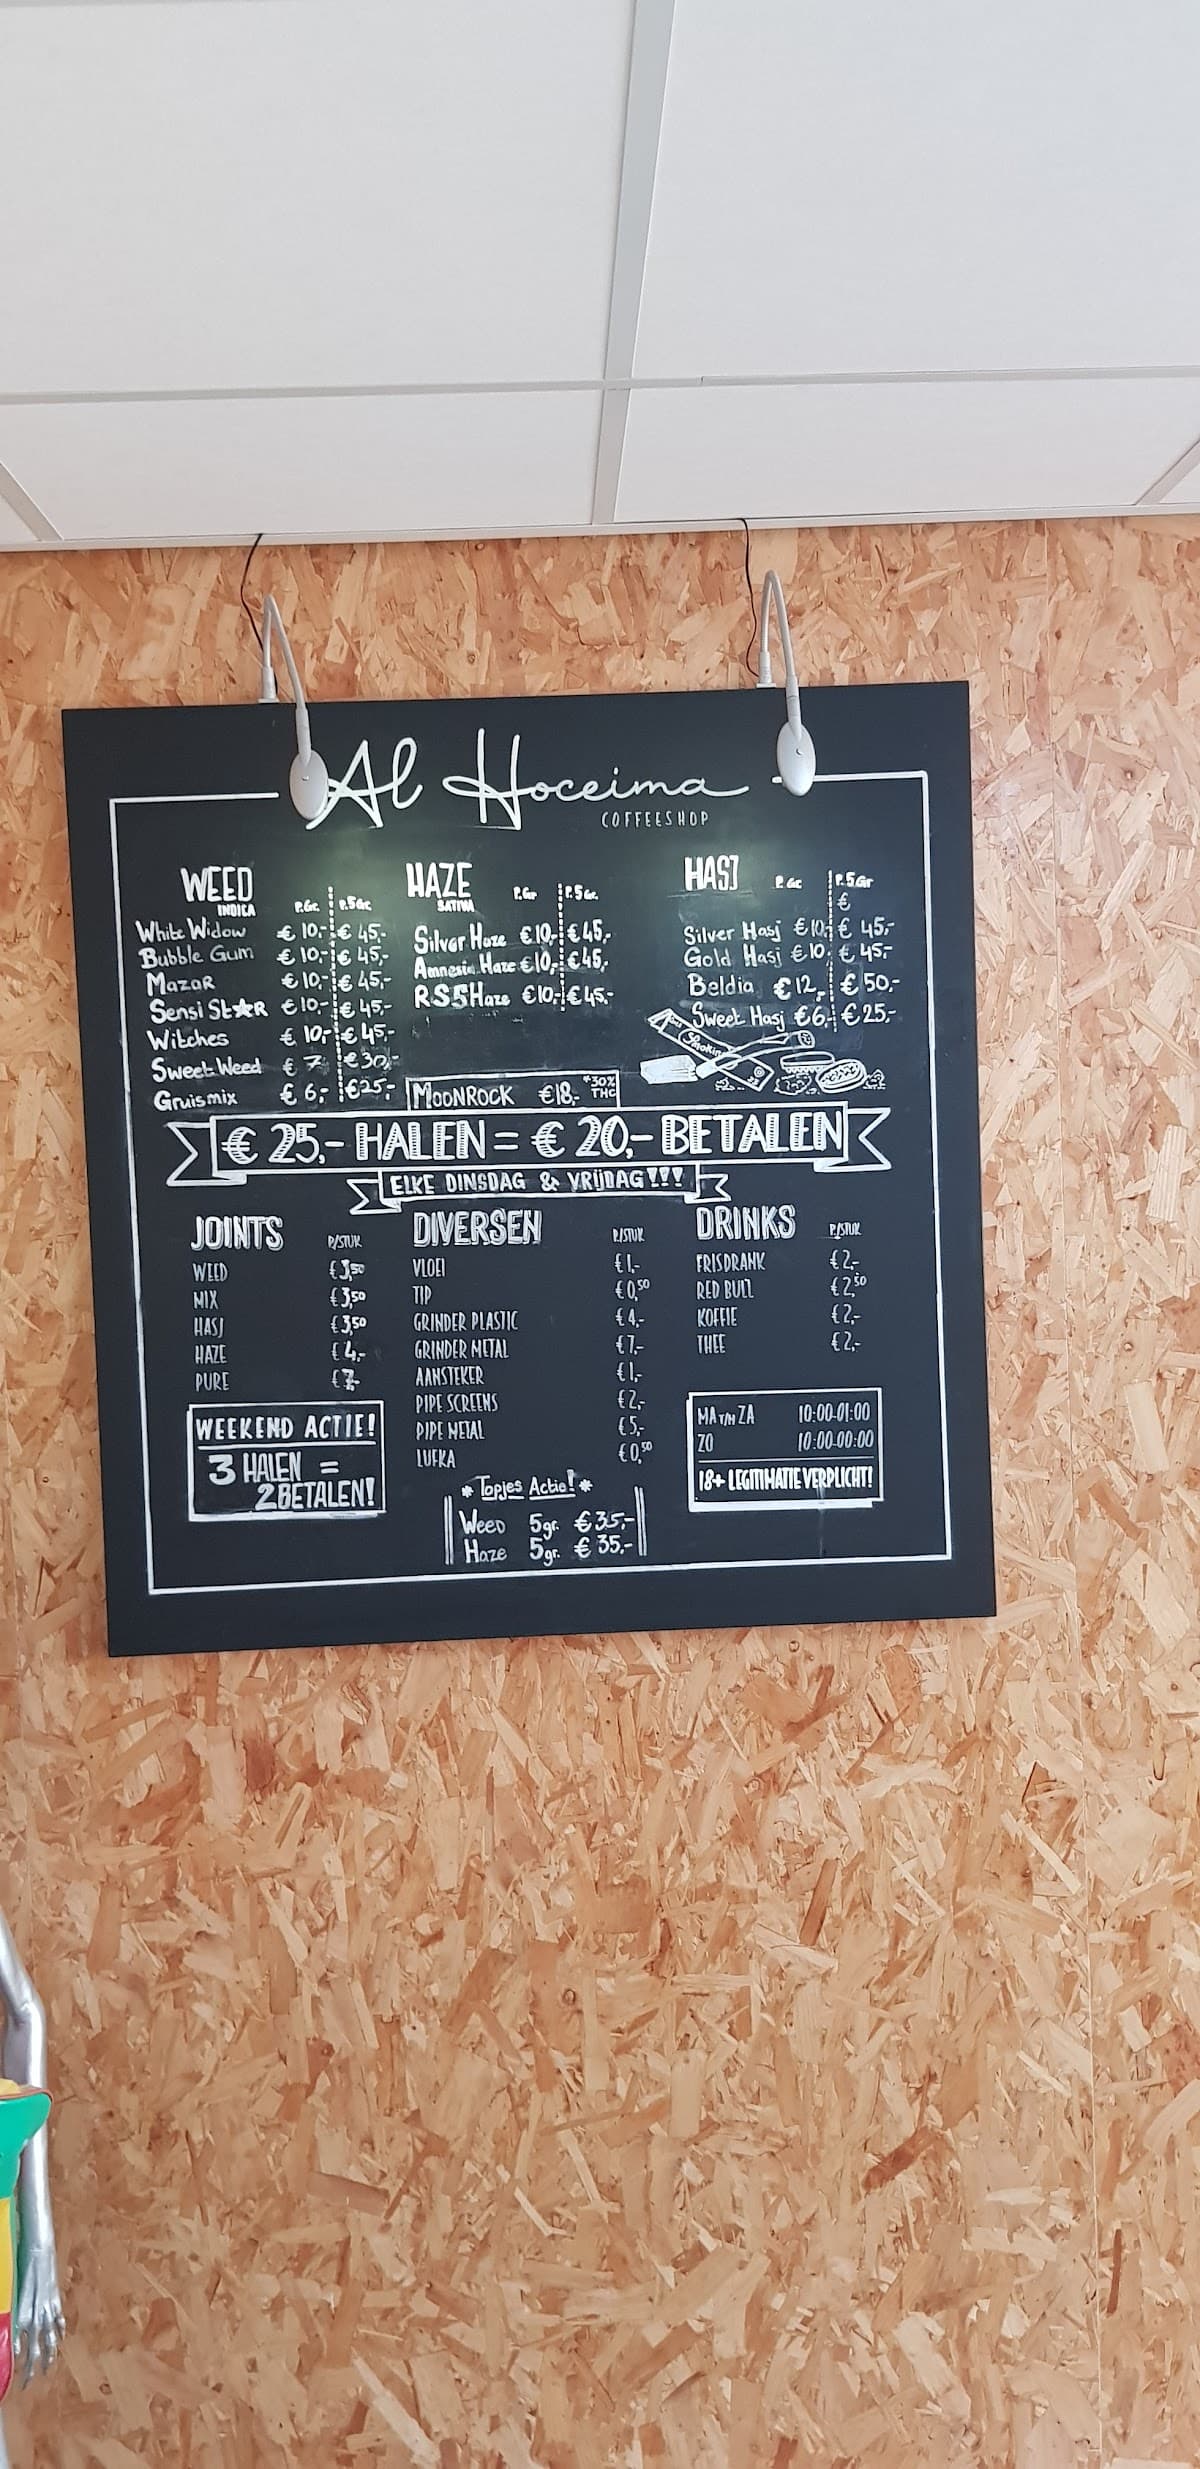 Al Hoceima
COFFEESHOP
WEED
INDICA
P.Gr. P.5Gr
White Widow € 10,- € 45,-
Bubble Gum € 10,- € 45,-
Mazar € 10,- € 45,-
Sensi St★r € 10,- € 45,-
Witches € 10,- € 45,-
Sweet Weed € 7 € 30,-
Gruismix € 6,- € 25,-
HAZE
SATIVA
P.Gr P.5Gr.
Silver Haze € 10,- € 45,-
Amnesia Haze € 10,- € 45,-
RSSHaze € 10,- € 45,-
MOONROCK €18,- *30% THC
HASJ
P.Gr P.5Gr
€
Silver Hasj € 10,- € 45,-
Gold Hasj € 10, € 45,-
Beldia € 12,- € 50,-
Sweet Hasj € 6,- € 25,-
Smoking
€ 25,- HALEN = € 20,- BETALEN
ELKE DINSDAG & VRIJDAG!!!
JOINTS P/STUK
WEED €3,50
MIX €3,50
HASJ €3,50
HAZE €4,-
PURE €7,-
WEEKEND ACTIE!
3 HALEN =
2 BETALEN!
DIVERSEN P/STUK
VLOEI €1,-
TIP €0,50
GRINDER PLASTIC €4,-
GRINDER METAL €7,-
AANSTEKER €1,-
PIPE SCREENS €2,-
PIPE METAL €5,-
LUFKA €0,50
* Topjes Actie! *
Weed 5gr. € 35,-
Haze 5gr. € 35,-
DRINKS P/STUK
FRISDRANK €2,-
RED BULL €2,50
KOFFIE €2,-
THEE €2,-
MA T/M ZA 10:00-01:00
ZO 10:00-00:00
18+ LEGITIMATIE VERPLICHT!